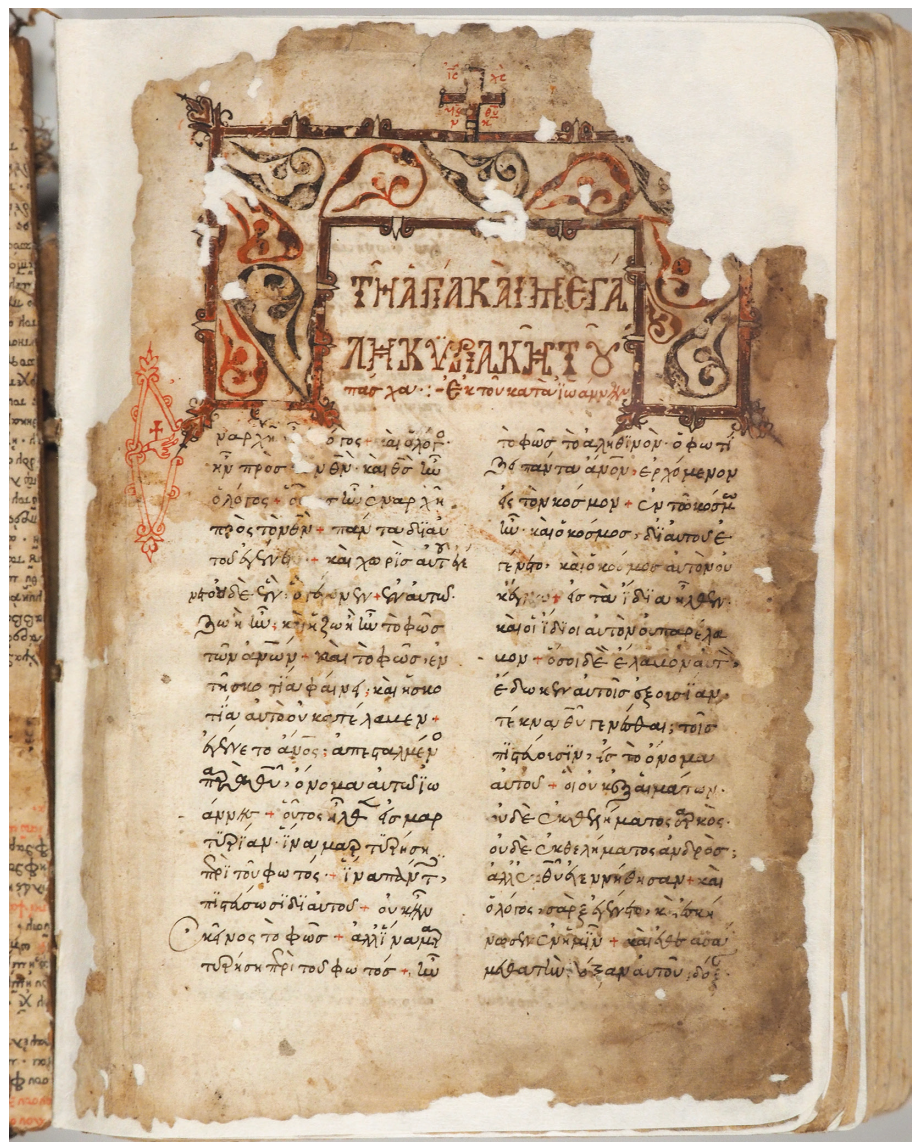 ΙΣ ΧΣ
ΤΗ ΑΓΙΑ ΚΑΙ ΜΕΓΑ
ΛΗ ΚΥΡΙΑΚΗ ΤΟΥ
πάσχα· ἐκ τοῦ κατὰ ἰωάννην
ν ἀρχῆ λόγος + καὶ ὁ λόγος
ἦν πρὸς θν· καὶ θς ἦν
ὁ λόγος + ἦν ἐν ἀρχῆ
πρὸς τὸν θν + πάντα δι αυ
τοῦ ἐγένετο + καὶ χωρὶς αὐτοῦ ἐγέ
νετο οὐδὲ ἕν· ὃ γέγονεν + ἐν αὐτῶ
ζωὴ ἦν· κ ἡ ζωὴ ἦν τὸ φῶς
τῶν ἀνων + καὶ τὸ φῶς, ἐν
τῆ σκοτία φαίνει· καὶ ἡ σκο
τία αὐτὸ οὐ κατέλαβεν +
ἐγένετο ἀνος· ἀπεσταλμένο
παρὰ θυ, ὄνομα αὐτῶ ἰω
άννης + οὗτος ἦλθεν εἰς μαρ
τυρίαν· ἵνα μαρτυρήση
περὶ τοῦ φωτός· + ἵνα πάντες
πιστεύσωσι δι αὐτοῦ + οὐκ ἦν
ἐκεῖνος τὸ φῶς + ἀλλ ἵνα μαρ
τυρήση περὶ τοῦ φωτός +. ἦν
τὸ φῶς τὸ ἀληθινὸν· ὃ φωτί
ζει πάντα ἀνον, ἐρχόμενον
εἰς τὸν κόσμον + ἐν τῶ κόσμω
ἦν· καὶ ὁ κόσμος, δι αὐτοῦ ἐ
γένετο, καὶ ὁ κόσμος αὐτὸν οὐ
κ ἔγνω + εἰς τὰ ἴδια ἦλθεν·
καὶ οἱ ἴδιοι αὐτὸν οὐ παρέλα
βον + ὅσοι δὲ ἔλαβον αὐτὸν,
ἔδωκεν αὐτοῖς ἐξουσίαν,
τέκνα θυ γενέσθαι, τοῖς
πιστεύουσιν, εἰς τὸ ὄνομα
αὐτοῦ + οἳ οὐκ ἐξ αἱμάτων·
οὐδὲ ἐκ θελήματος σαρκός·
οὐδὲ ἐκ θελήματος ἀνδρὸς,
ἀλλ ἐκ θυ ἐγεννήθησαν + καὶ
ὁ λόγος, σὰρξ ἐγένετο, κ ἐσκή
νωσεν ἐν ἡμῖν + καὶ ἐθεασά
μεθα τὴν δόξαν αὐτοῦ, δόξ